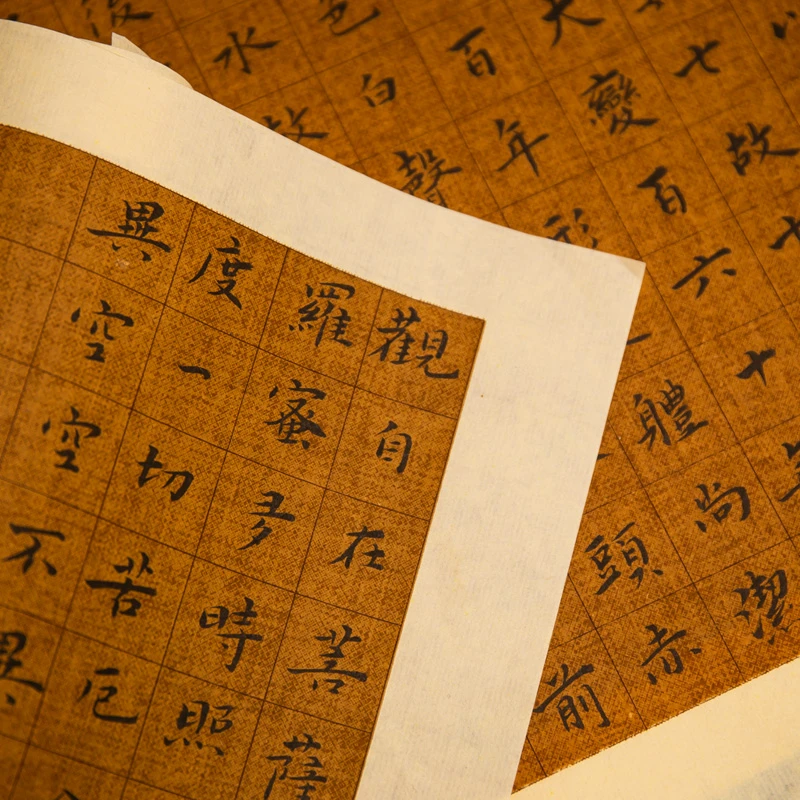 觀自在菩薩
羅蜜多時照
度一切苦厄
異空空不異
七故
大變百六十
百年形體尚潔
色白聲頭赤
水故前
後